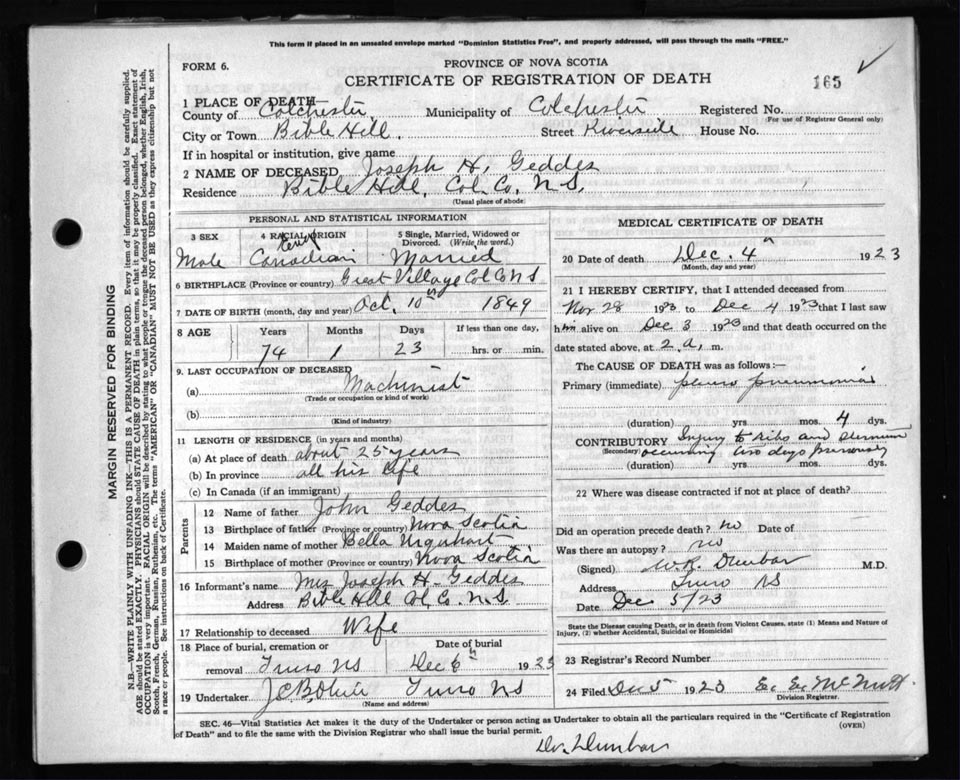 This form if placed in an unsealed envelope marked "Dominion Statistics Free", and properly addressed, will pass through the mails "FREE."
FORM 6.
PROVINCE OF NOVA SCOTIA
CERTIFICATE OF REGISTRATION OF DEATH
165
1 PLACE OF DEATH—
County of Colchester Municipality of Colchester Registered No.
(For use of Registrar General only)
City or Town Bible Hill. Street Riverside House No.
If in hospital or institution, give name
2 NAME OF DECEASED Joseph H. Geddes
Residence Bible Hill, Col. Co. N.S.
(Usual place of abode)
PERSONAL AND STATISTICAL INFORMATION
3 SEX 4 RACIAL ORIGIN 5 Single, Married, Widowed or Divorced. (Write the word.)
Male Canadian Married
6 BIRTHPLACE (Province or country) Great Village Col Co N S
7 DATE OF BIRTH (month, day and year) Oct. 10th 1849
8 AGE Years Months Days If less than one day,
74 1 23 hrs. or min.
9. LAST OCCUPATION OF DECEASED
(a) Machinist
(Trade or occupation or kind of work)
(b)
(Kind of industry)
11 LENGTH OF RESIDENCE (in years and months)
(a) At place of death about 25 years
(b) In province all his life
(c) In Canada (if an immigrant)
Parents
12 Name of father John Geddes
13 Birthplace of father (Province or country) Nova Scotia
14 Maiden name of mother Bella Urquhart
15 Birthplace of mother (Province or country) Nova Scotia
16 Informant's name Mrs Joseph H. Geddes
Address Bible Hill Col. Co. N.S.
17 Relationship to deceased Wife
18 Place of burial, cremation or removal Truro NS Date of burial Dec 6th 1923
19 Undertaker Truro NS
(Name and address)
MEDICAL CERTIFICATE OF DEATH
20 Date of death Dec. 4th 1923
(Month, day and year)
21 I HEREBY CERTIFY, that I attended deceased from
Nov 28 1923 to Dec 4 1923 that I last saw
him alive on Dec 3 1923 and that death occurred on the
date stated above, at 2 a. m.
The CAUSE OF DEATH was as follows:—
Primary (immediate) pleuro pneumonia
(duration) yrs. mos. 4 dys.
CONTRIBUTORY Injury to ribs and sternum
(Secondary) occurring two days previously
(duration) yrs. mos. dys.
22 Where was disease contracted if not at place of death?
Did an operation precede death? no Date of
Was there an autopsy? no
(Signed) W.R. Dunbar M.D.
Address Truro NS
Date Dec 5/23
State the Disease causing Death, or in death from Violent Causes, state (1) Means and Nature of
Injury, (2) whether Accidental, Suicidal or Homicidal
23 Registrar's Record Number
24 Filed Dec 5 1923 McNutt
Division Registrar.
SEC. 46—Vital Statistics Act makes it the duty of the Undertaker or person acting as Undertaker to obtain all the particulars required in the "Certificate of Registration
of Death" and to file the same with the Division Registrar who shall issue the burial permit. (OVER)
Dr. Dunbar
MARGIN RESERVED FOR BINDING
N.B.—WRITE PLAINLY WITH UNFADING INK—THIS IS A PERMANENT RECORD. Every item of information should be carefully supplied.
AGE should be stated EXACTLY. PHYSICIANS should STATE CAUSE OF DEATH in plain terms, so that it may be properly classified. Exact statement of
OCCUPATION is very important. RACIAL ORIGIN will be described by stating to what people or tongue the deceased person belonged, whether English, Irish,
Scotch, French, German, Russian, Ruthenian, etc. The terms "AMERICAN" OR "CANADIAN" MUST NOT BE USED as they express citizenship but not
a race or people. See instructions on back of Certificate.